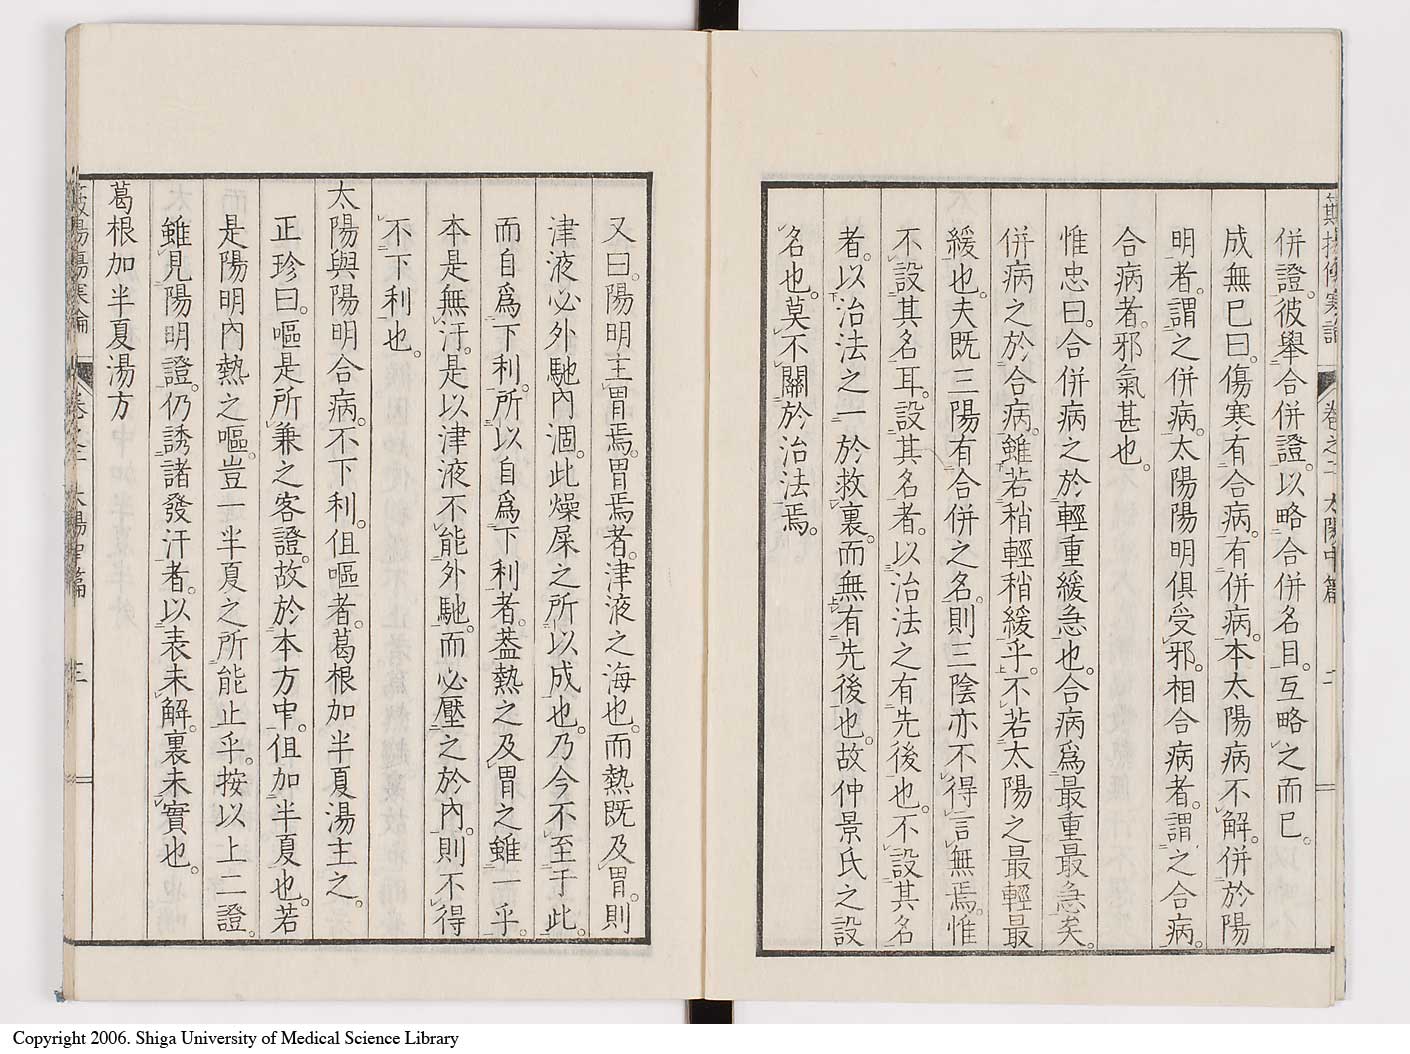 併證。彼舉合併證。以略合併名目。互略之而已。
成無已曰。傷寒有合病。有併病。本太陽病不解。併於陽
明者。謂之併病。太陽陽明俱受邪。相合病者。謂之合病。
合病者。邪氣甚也。
惟忠曰。合併病之於輕重緩急也。合病爲最重最急矣。
併病之於合病。雖若稍輕稍緩乎。不若太陽之最輕最
緩也。夫既三陽有合併之名。則三陰亦不得言無焉。惟
不設其名耳。設其名者。以治法之有先後也。不設其名
者。以治法之一於救裏。而無有先後也。故仲景氏之設
名也。莫不關於治法焉。
又曰。陽明主胃焉。胃焉者。津液之海也。而熱既及胃。則
津液必外馳內涸。此燥屎之所以成也。乃今不至于此。
而自爲下利。所以自爲下利者。葢熱之及胃之雖一乎。
本是無汗。是以津液不能外馳。而必壓之於內。則不得
不下利也。
太陽與陽明合病。不下利。但嘔者。葛根加半夏湯主之。
正珍曰。嘔是所兼之客證。故於本方中。但加半夏也。若
是陽明內熱之嘔。豈一半夏之所能止乎。按以上二證。
雖見陽明證。仍誘諸發汗者。以表未解。裏未實也。
葛根加半夏湯方
卷之二 太陽中篇